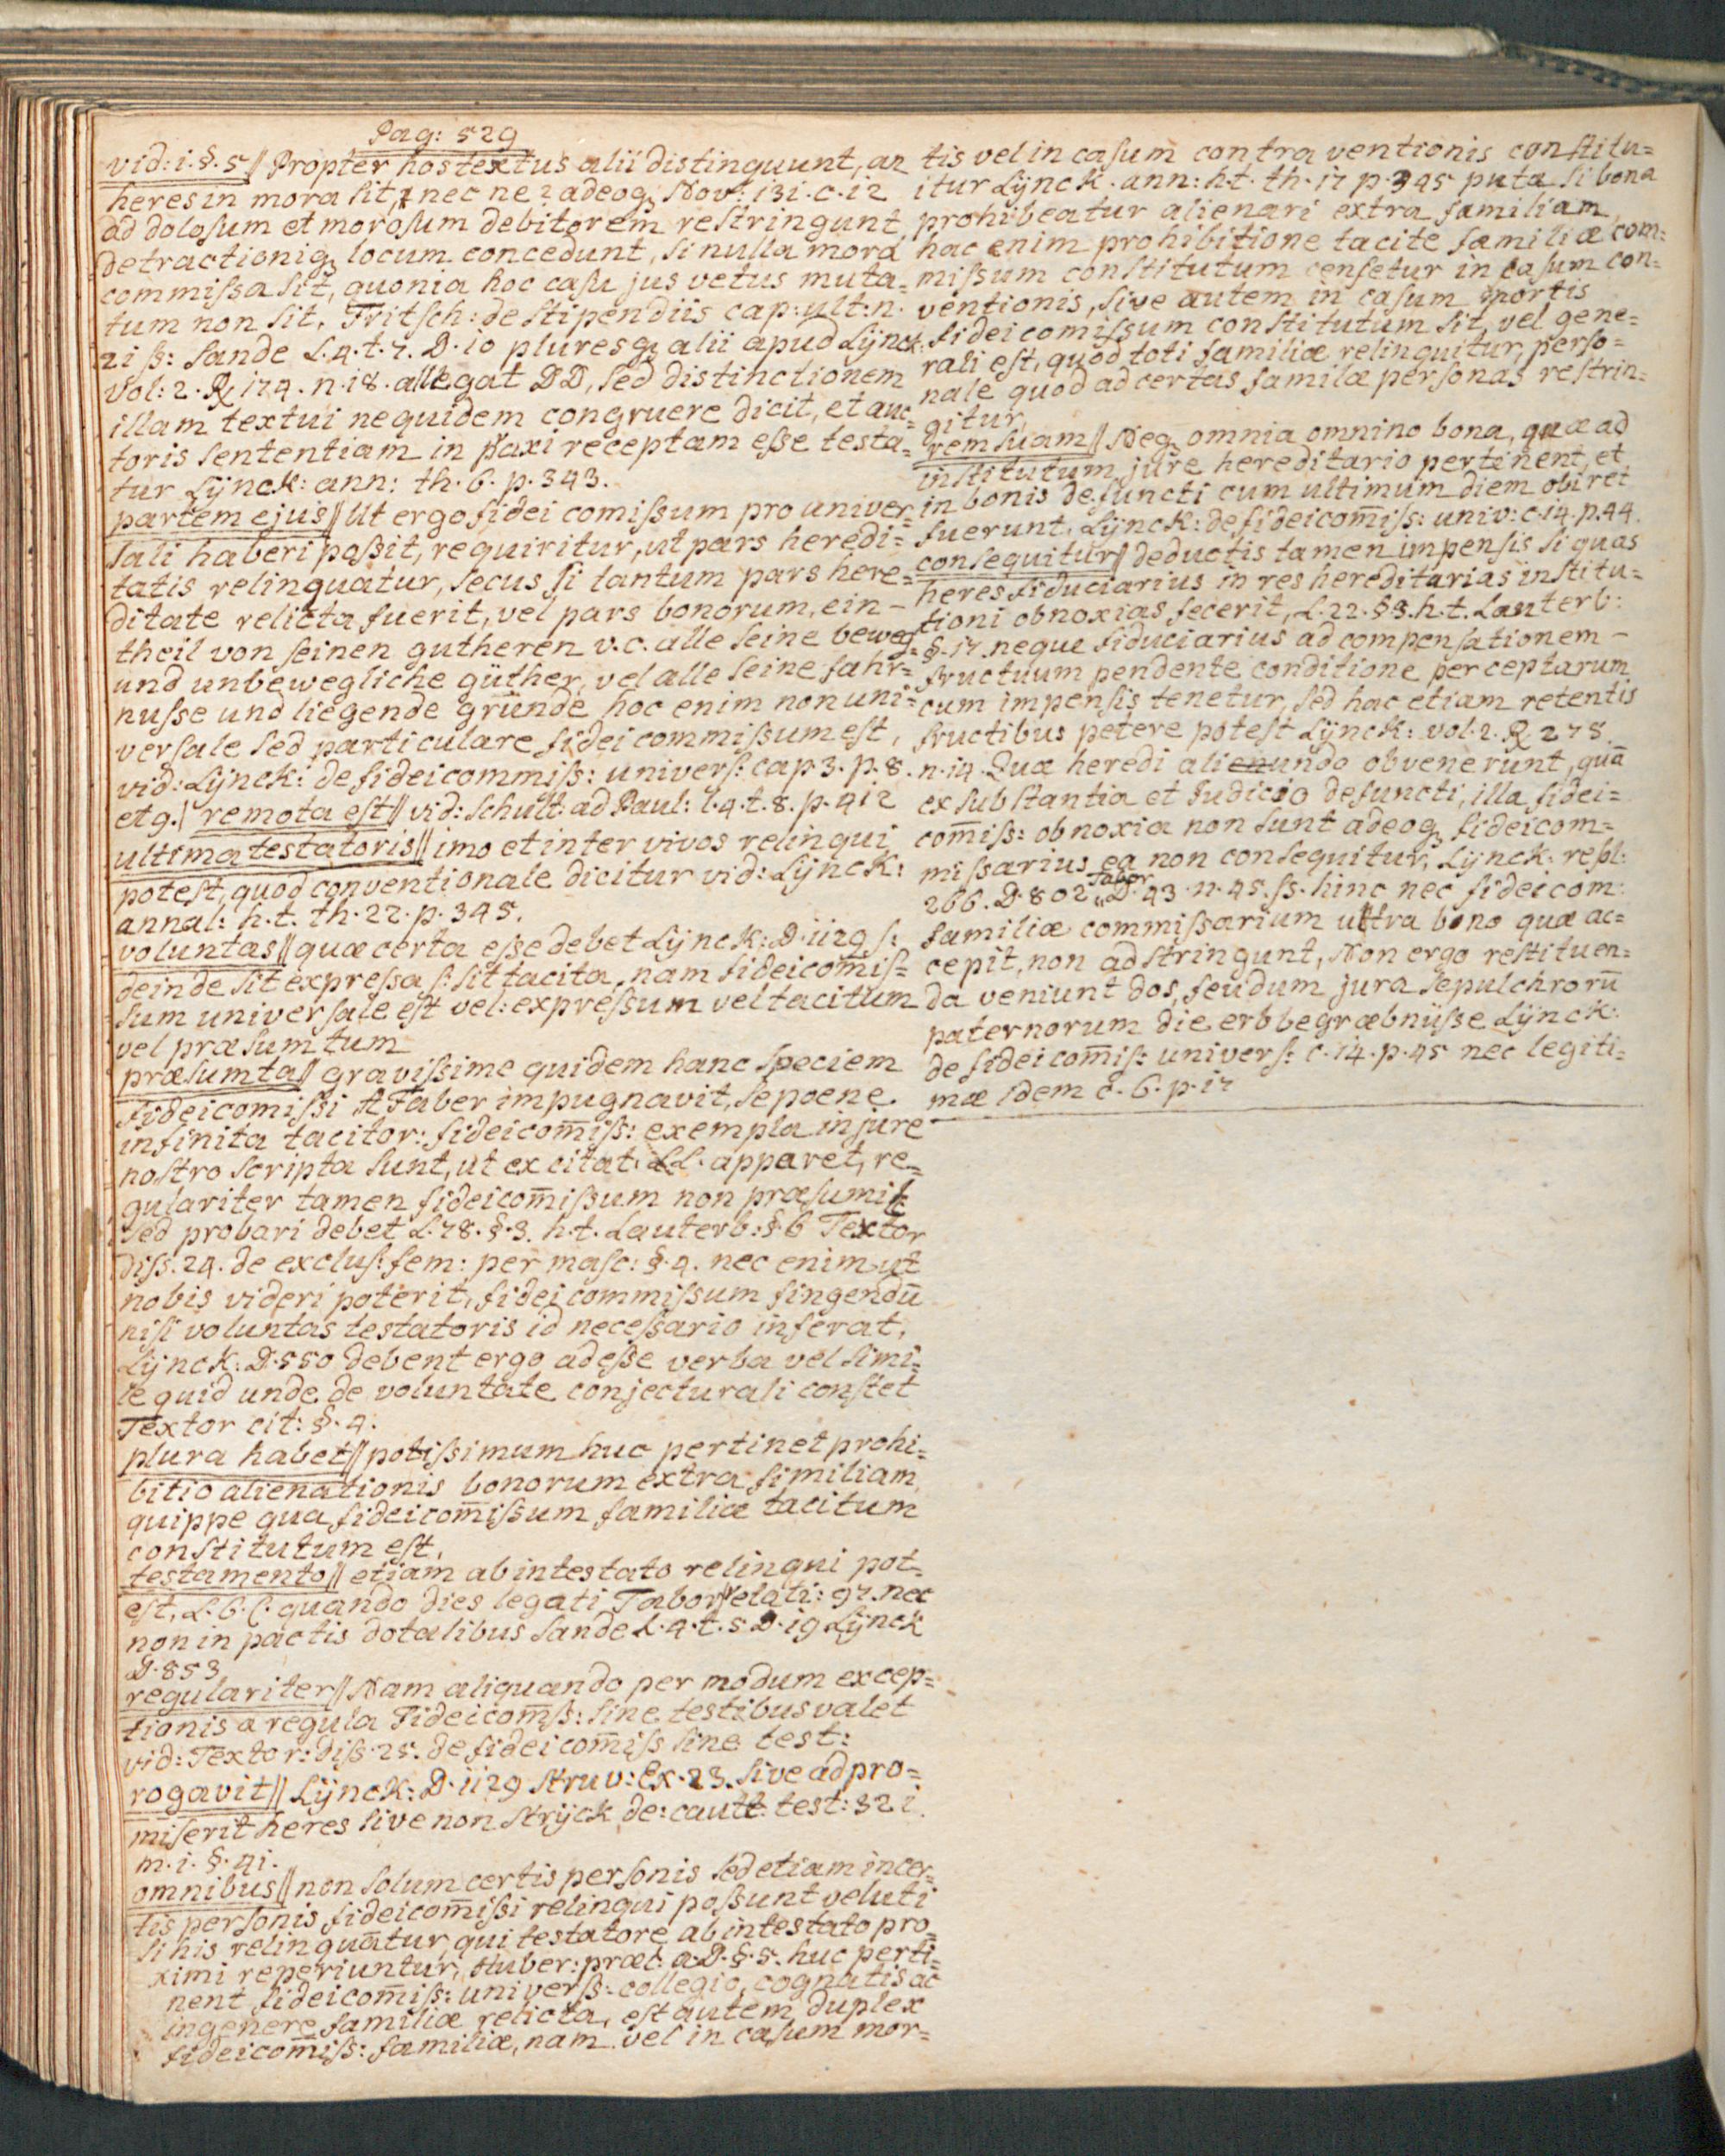 Pag: 529
vid: i. §. 5 || Propter hos textus alii distinguunt, an
heres in mora sit, nec ne? adeoq, Nov: 131. c. 12
ad dolosum et morosum debitorem restringunt,
detractioniq, locum concedunt, si nulla mora
commissa sit, quonia hoc casu jus vetus muta=
tum non sit, Fritsch: de stipendiis cap: ult: n.
21 ss: Sande L. 4. t. 7. D. 10 pluresq, alii apud Lÿnck:
Vol: 2. R. 174. n. 18. allegat DD, sed distinctionem
illam textui nequidem congruere dicit, et auc=
toris sententiam in paxi receptam esse testa=
tur Lÿnck: ann: th. 6. p. 343.
partem ejus || Ut ergo fidei comissum pro univer=
sali haberi possit, requiritur, ut pars heredi=
tatis relinquatur, secus si tantum pars here=
ditate relicta fuerit, vel pars bonorum, ein -
theil von seinen gutheren v. c. alle seine beweg=
und unbewegliche güther, vel alle seine fahr=
nusse und liegende gründe hoc enim non uni=
versale sed particulare fideicommissum est,
vid: Lÿnck: de fideicommiss: univers: cap 3. p. 8.
et 9. | remota est || vid: Schult: ad Paul: l. 4. t. 8. p. 412
ultima testatoris || imo et inter vivos relinqui
potest, quod conventionale dicitur vid: Lÿnck:
annal: h. t. th. 22. p. 345.
voluntas || quæ certa esse debet Lÿnck: D. 1129 s:
deinde sit expressa s: sit tacita, nam fideicom̄iss=
sum universale est vel: expressum vel tacitum
vel præsumtum
præsumta || gravissime quidem hanc speciem
fideicomissi A Faber impugnavit, sepoene
infinita tacitor: fideicom̄iss: exempla in jure
nostro scripta sunt, ut ex citat. LL. apparet, re=
gulariter tamen fideicom̄issum non præsumit
sed probari debet L. 78. §. 3. h. t. Lauterb: §. 6 Textor
diss. 24. de exclus: fem: per masc: §. 4. nec enim ut
nobis videri poterit, fideicommissum fingendū
nisi voluntas testatoris id necessario inferat,
Lÿnck: D. 550 debent ergo adesse verba vel simi=
le quid unde de voluntate conjecturali constet
Textor cit: §. 4.
plura habet || potissimum huc pertinet prohi=
bitio alienationis bonorum extra similiam,
quippe qua fideicom̄issum familiæ tacitum
constitutum est.
testamento || etiam ab intestato relinqui pot=
est, L. 6. C. quando dies legati Tabor relati: 97. nec
non in pactis dotalibus Sande L. 4. t. 5 D. 19 Lÿnck
D. 853
regulariter || Nam aliquando per modum excep=
tionis a regula Fideicom̄ss: sine testibus valet
vid: Textor: diss. 25. de fideicom̄iss sine test:
rogavit || Lÿnck: D. 1129 Struv: Ex. 23. sive adpro=
miserit heres sive non Strÿck de: cautt: test: 321.
m. 1. §. 41.
omnibus || non solum certis personis sed etiam incer=
tis personis fideicom̄issi relinqui possunt veluti
si his relinquātur, qui testatore ab intestato pro=
ximi reperiuntur, Huber: præl: a. D. §. 5. huc perti=
nent fideicom̄iss: universs: collegio, cognatis ac
in genere familiæ relicta, est autem duplex
fideicom̄iss: familiæ, nam vel in casum mor=
tis vel in casum contra ventionis constitu=
itur Lÿnck. ann: h. t. th. 17 p. 345 puta si bona
prohibeatur alienari extra familiam,
hac enim prohibitione tacite familiæ com=
missum constitutum censetur in casum con=
ventionis, sive autem in casum mortis
fideicomissum constitutum sit, vel gene=
rali est, quod toti familiæ relinquitur, perso=
nale quod ad certas familæ personas restrin=
gitur,
rem suam || Neq, omnia omnino bona, quæ ad
institutum jure hereditario pertinent, et
in bonis defuncti cum ultimum diem obiret
fuerunt, Lÿnck: de fideicom̄iss: univ: c. 14. p. 44.
consequitur || deductis tamen impensis si quas
heres fiduciarius in res hereditarias institu=
tioni obnoxias fecerit, L. 22. §3. h. t. Lauterb:
§. 17. neque fiduciarius ad compensationem -
fructuum pendente conditione perceptarum
cum impensis tenetur, sed hac etiam retentis
fructibus petere potest Lÿnck: vol. 2. R. 278.
n. 14. Quæ heredi aliundo obvenerunt, quā
ex substantia et Judicio defuncti, illa fidei=
com̄iss: obnoxia non sunt adeoq, fideicom=
missarius ea non consequitur, Lÿnck: resl:
266. D. 802. Tabor D. 43. n. 45. ss. hinc nec fideicom:
familiæ commissarium ultra bono quæ ac=
cepit, non adstringunt, Non ergo restituen=
da veniunt dos, feudum jura sepulchrorū
paternorum die erbbegræbnüsse Lÿnck:
de fideicom̄iss: univers: c. 14. p. 45 nec legiti=
mæ idem c. 6. p. 17